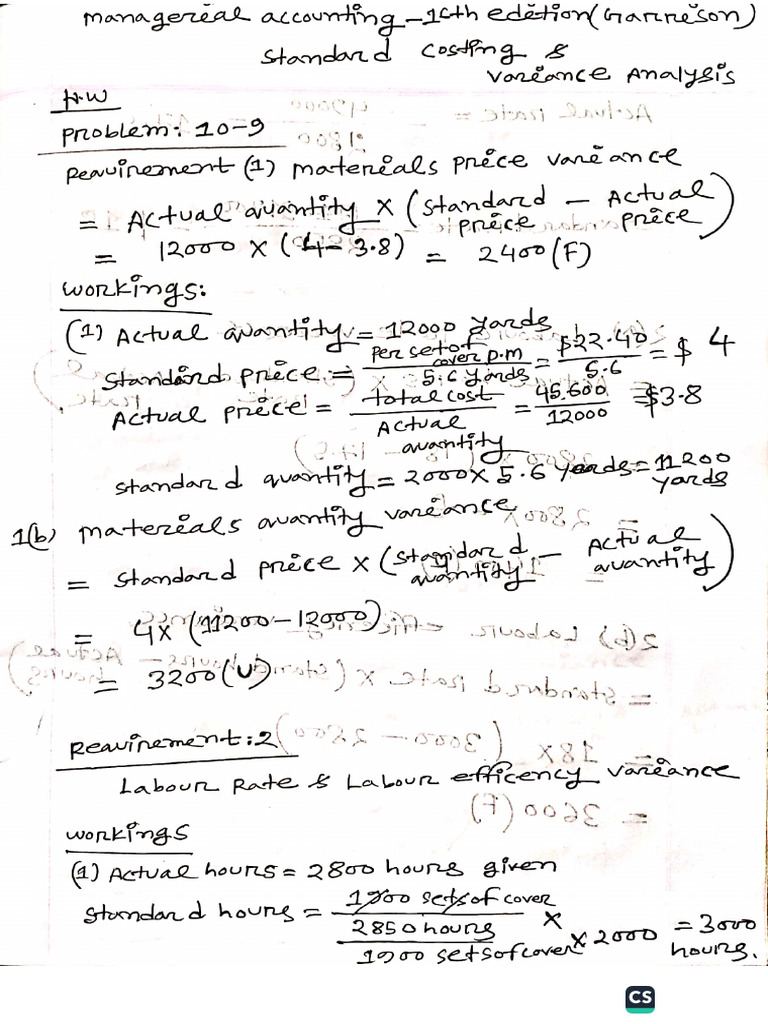 managerial accounting - 16th edition (Garrison)
Standard Costing &
Variance Analysis
H.W
Problem: 10-9
Requirement (1) materials price variance
= Actual quantity × (Standard price - Actual price)
= 12000 × (4 - 3.8) = 2400 (F)
Workings:
(1) Actual quantity = 12000 yards
Standard price = Per set of cover p.m / 5.6 yards = $22.40 / 5.6 = $ 4
Actual price = total cost / Actual quantity = 45.600 / 12000 = $3.8
Standard quantity = 2000 × 5.6 yards = 11200 yards
1(b) materials quantity variance
= Standard price × (Standard quantity - Actual quantity)
= 4 × (11200 - 12000)
= 3200 (U)
Requirement: 2
Labour Rate & Labour efficency variance
workings
(1) Actual hours = 2800 hours given
Standard hours = 1900 sets of cover ×
2850 hours / 1900 sets of cover × 2000 = 3000 hours.
CS